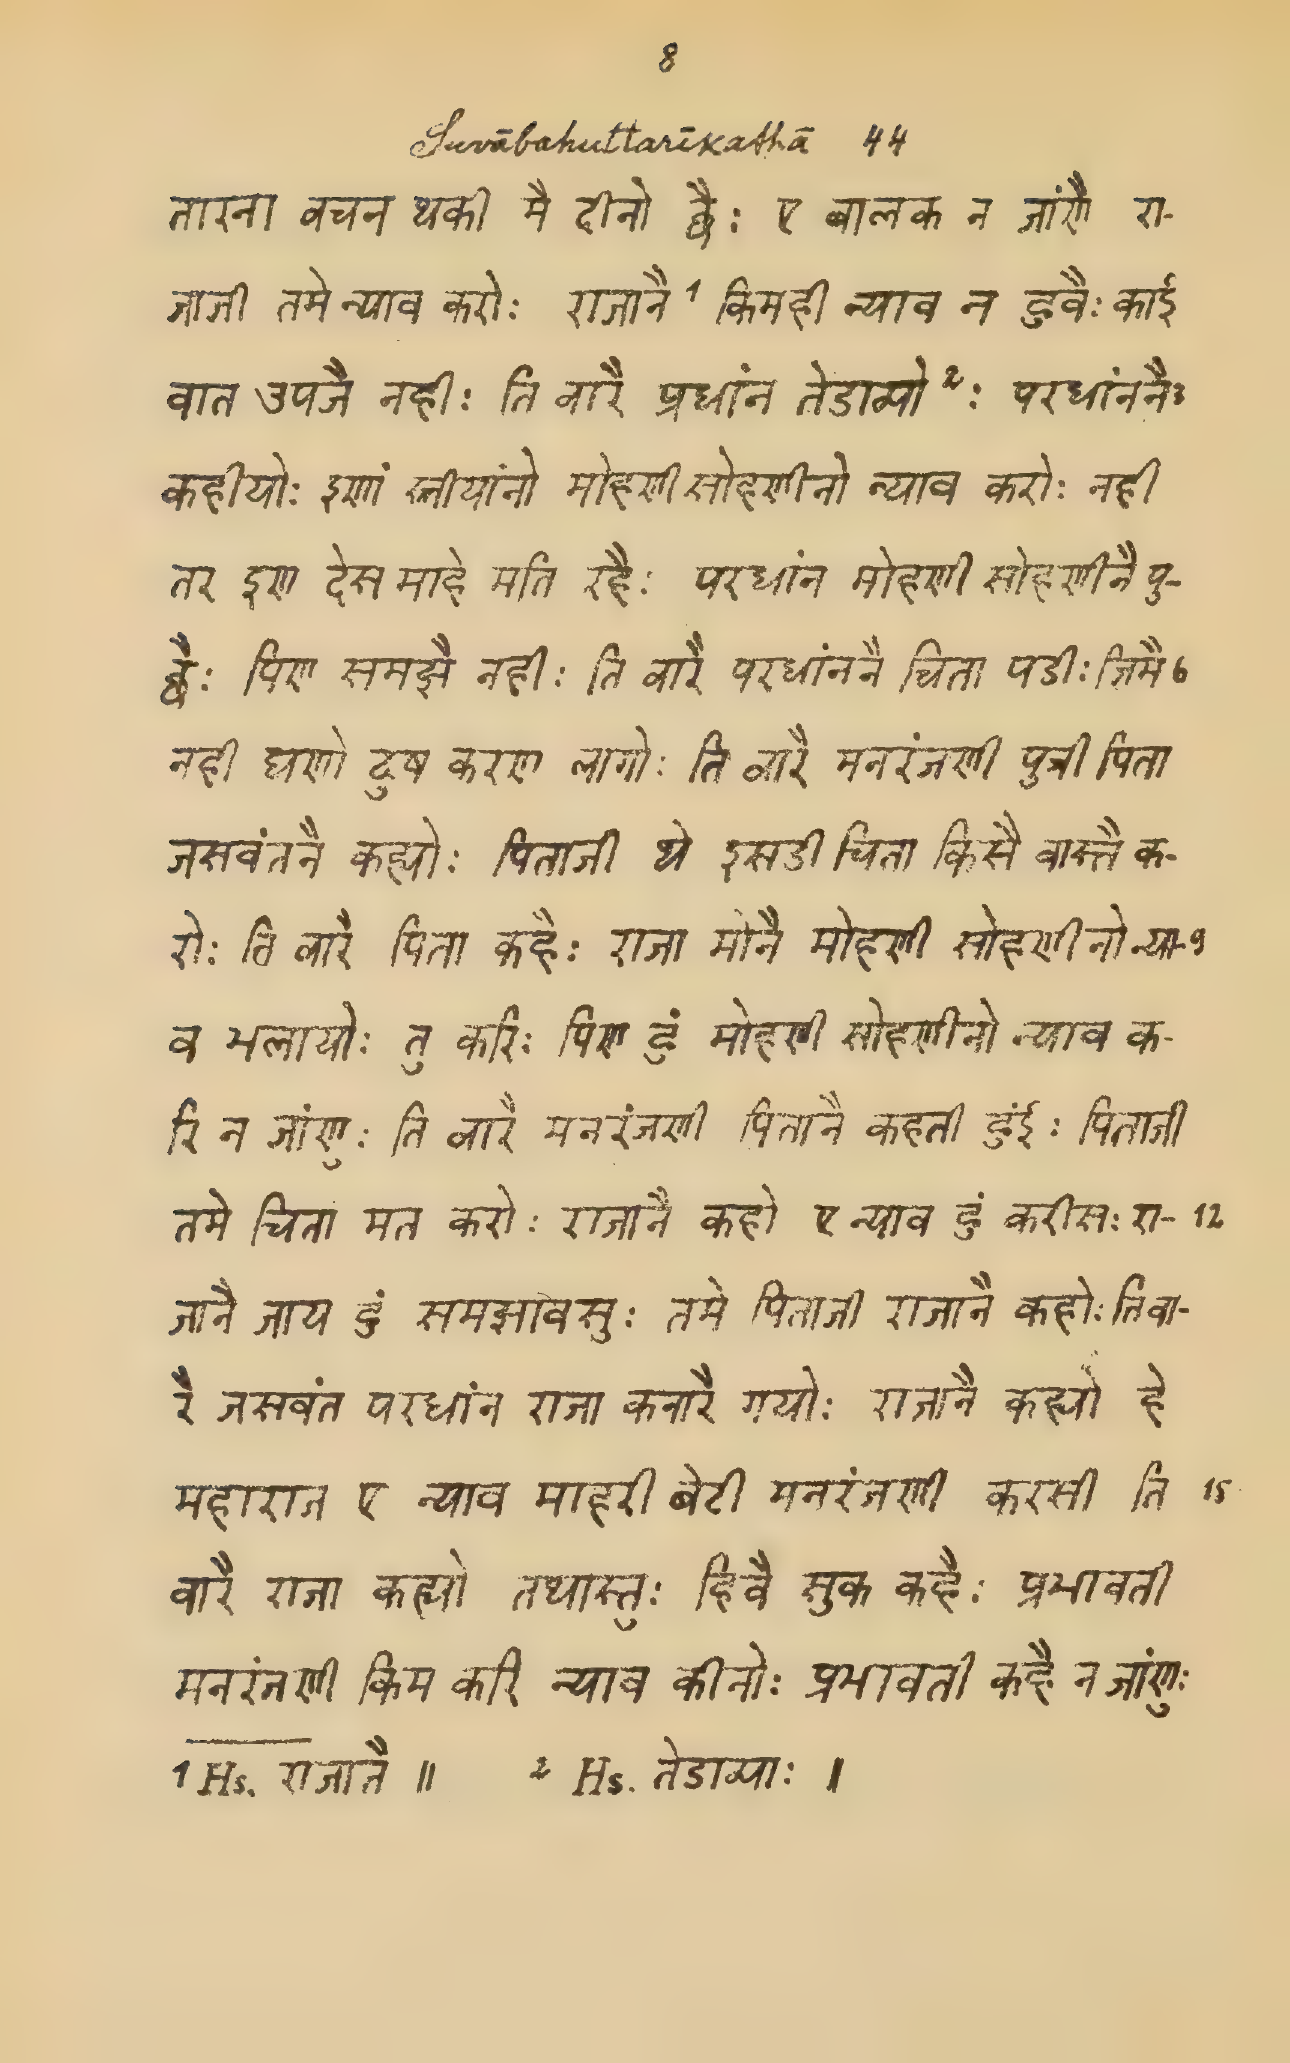 8
Suvābahuttarīkathā 44
तारना वचन थकी मै दीनो छै: ए बालक न जांणै रा-
जाजी तमे न्याव करो: राजानै 1 किमही न्याव न हुवै: काई
वात उपजै नही: ति वारै प्रधांन तेडाव्यो 2: परधांननै 3
कहीयो: इणं स्त्रीयांनो मोहणी सोहणीनो न्याव करो: नही
तर इण देस माहे मति रहै: परधांन मोहणी सोहणीनै पु-
छै: पिण समझै नही: ति वारै परधांननै चिता पडी: जिमै 6
नही घणो दुष करण लागो: ति वारै मनरंजणी पुत्री पिता
जसवंतनै कह्यो: पिताजी थे इसडी चिता किसै वास्तै क-
रो: ति वारै पिता कहै: राजा मोनै मोहणी सोहणीनो न्या- 9
व भलायो: तु करि: पिण हुं मोहणी सोहणीनो न्याव क-
रि न जांणु: ति वारै मनरंजणी पितानै कहती हुंई: पिताजी
तमे चिता मत करो: राजानै कहो ए न्याव हुं करीस: रा- 12
जानै जाय हुं समझावसु: तमे पिताजी राजानै कहो: ति वा-
रै जसवंत परधांन राजा कनारै गयो: राजानै कह्यो हे
महाराज ए न्याव माहरी बेटी मनरंजणी करसी ति 15
वारै राजा कह्यो तथास्तु: हिवै सुक कहै: प्रभावती
मनरंजणी किम करि न्याव कीनो: प्रभावती कहै न जांणु:
1 Hs. राजातै ॥ 2 Hs. तेडाव्या: ॥